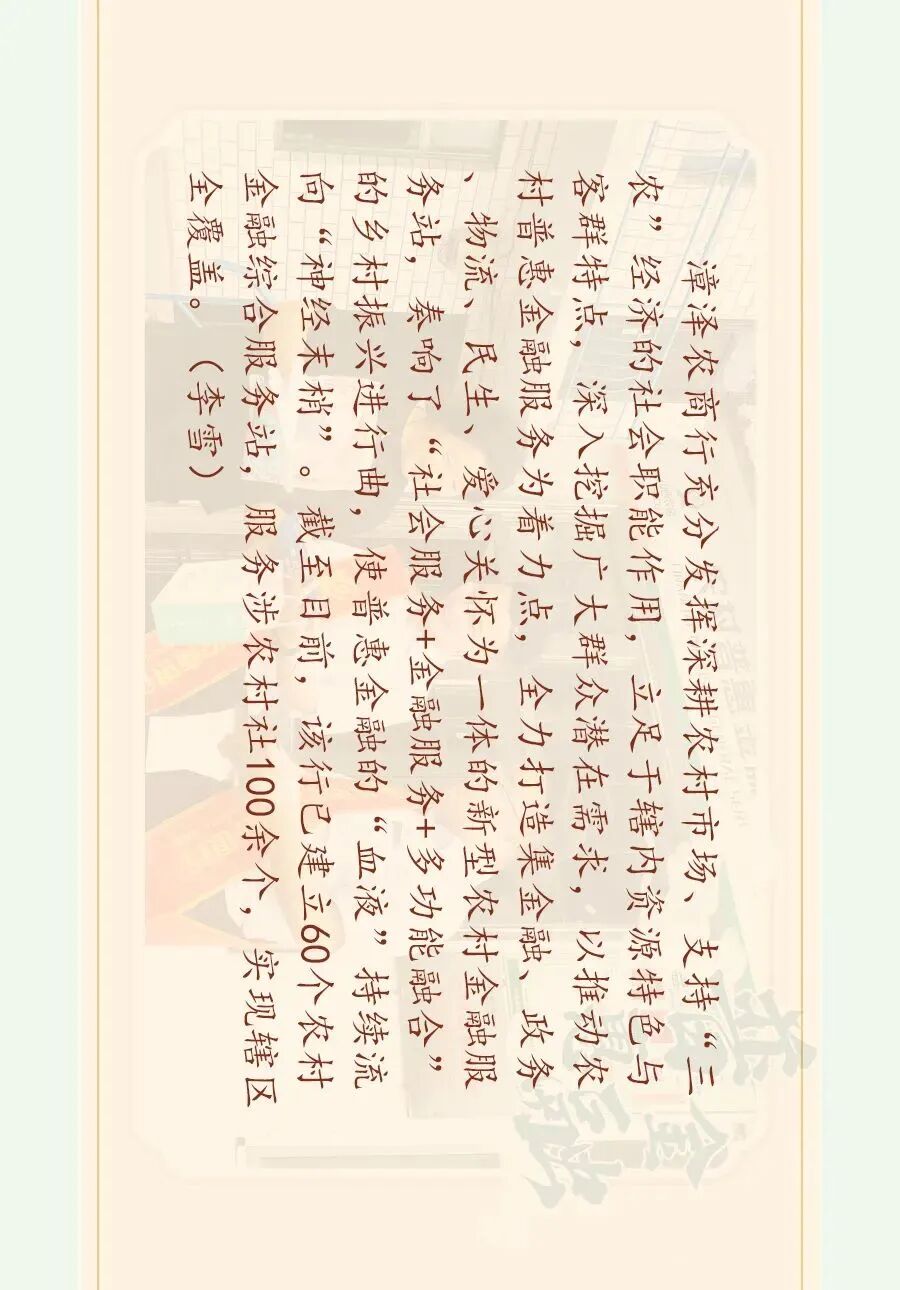 漳泽农商行充分发挥深耕农村市场、支持“三
农”经济的社会职能作用，立足于辖内资源特色与
客群特点，深入挖掘广大群众潜在需求，以推动农
村普惠金融服务为着力点，全力打造集金融、政务
、物流、民生、爱心关怀为一体的新型农村金融服
务站，奏响了“社会服务+金融服务+多功能融合”
的乡村振兴进行曲，使普惠金融的“血液”持续流
向“神经末梢”。截至目前，该行已建立60个农村
金融综合服务站，服务涉农村社100余个，实现辖区
全覆盖。（李雪）